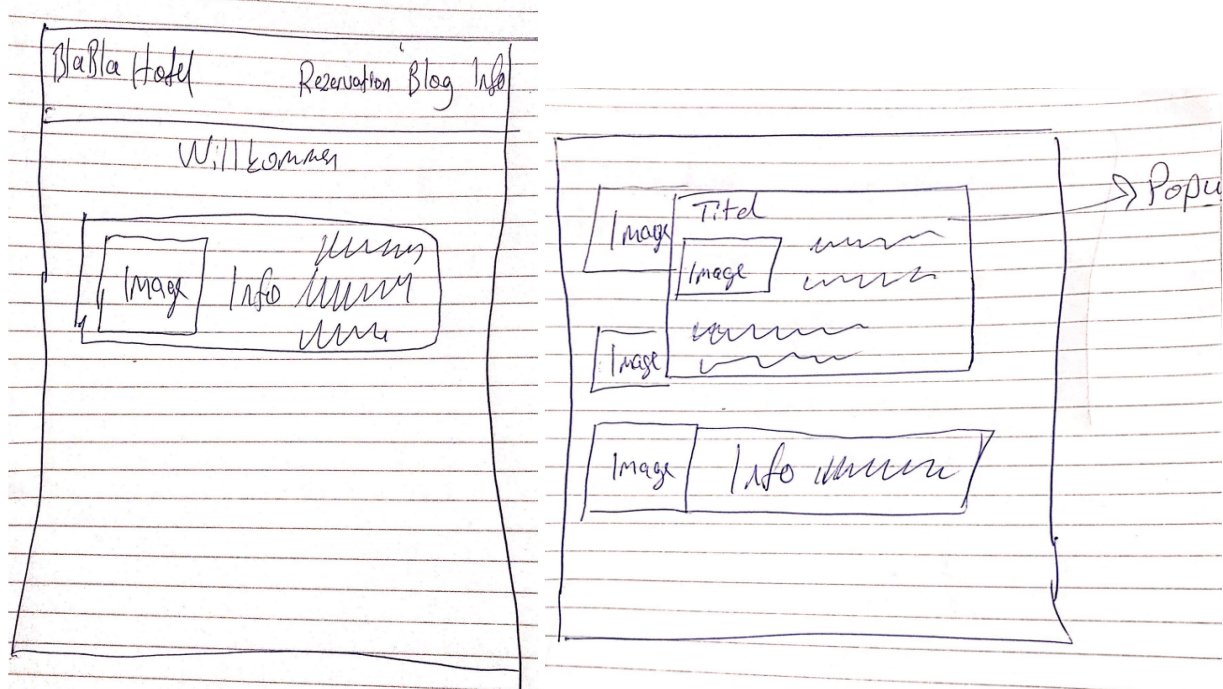 BlaBla Hotel
Rezervation Blog Info
Willkommen
Image
Info
Titel
Image
Image
Image
Image
Info
Popu